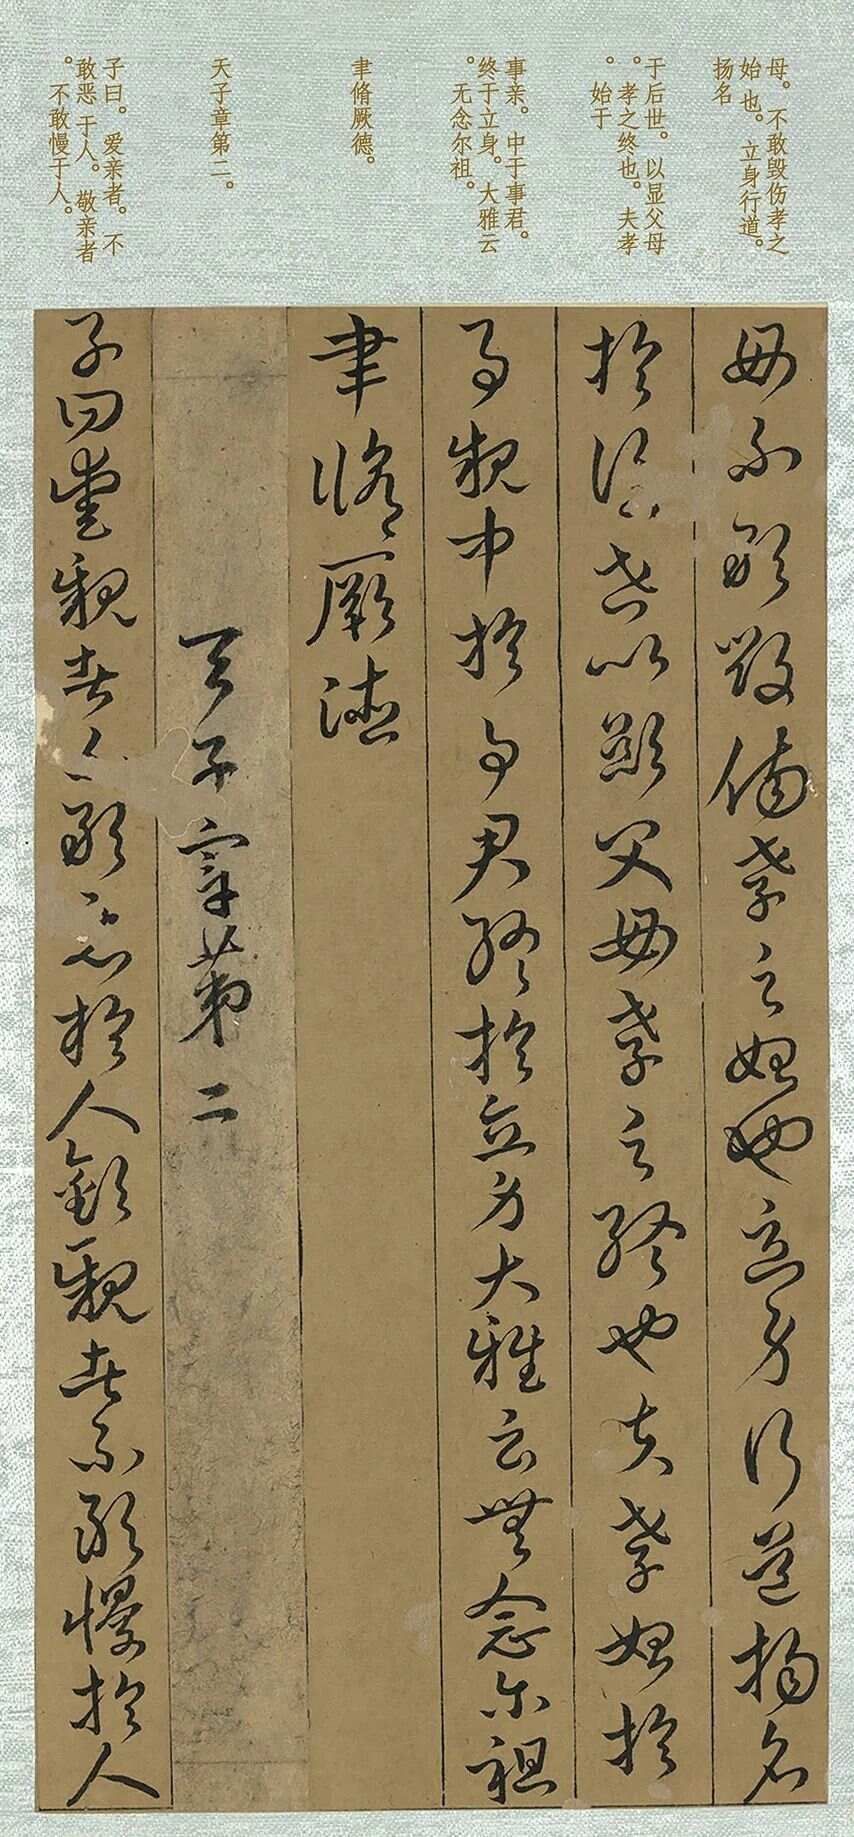 母。不敢毁伤孝之
始也。立身行道。
扬名
于后世。以显父母
。孝之终也。夫孝
。始于
事亲。中于事君。
终于立身。大雅云
。无念尔祖。
聿脩厥德。
天子章第二。
子曰。爱亲者。不
敢恶于人。敬亲者
。不敢慢于人。
母不敢毁伤孝之始也立身行道扬名
於后世以显父母孝之终也夫孝始於
事亲中於事君终於立身大雅云無念尔祖
聿脩厥德
天子章第二
子曰爱亲者不敢恶於人敬亲者不敢慢於人